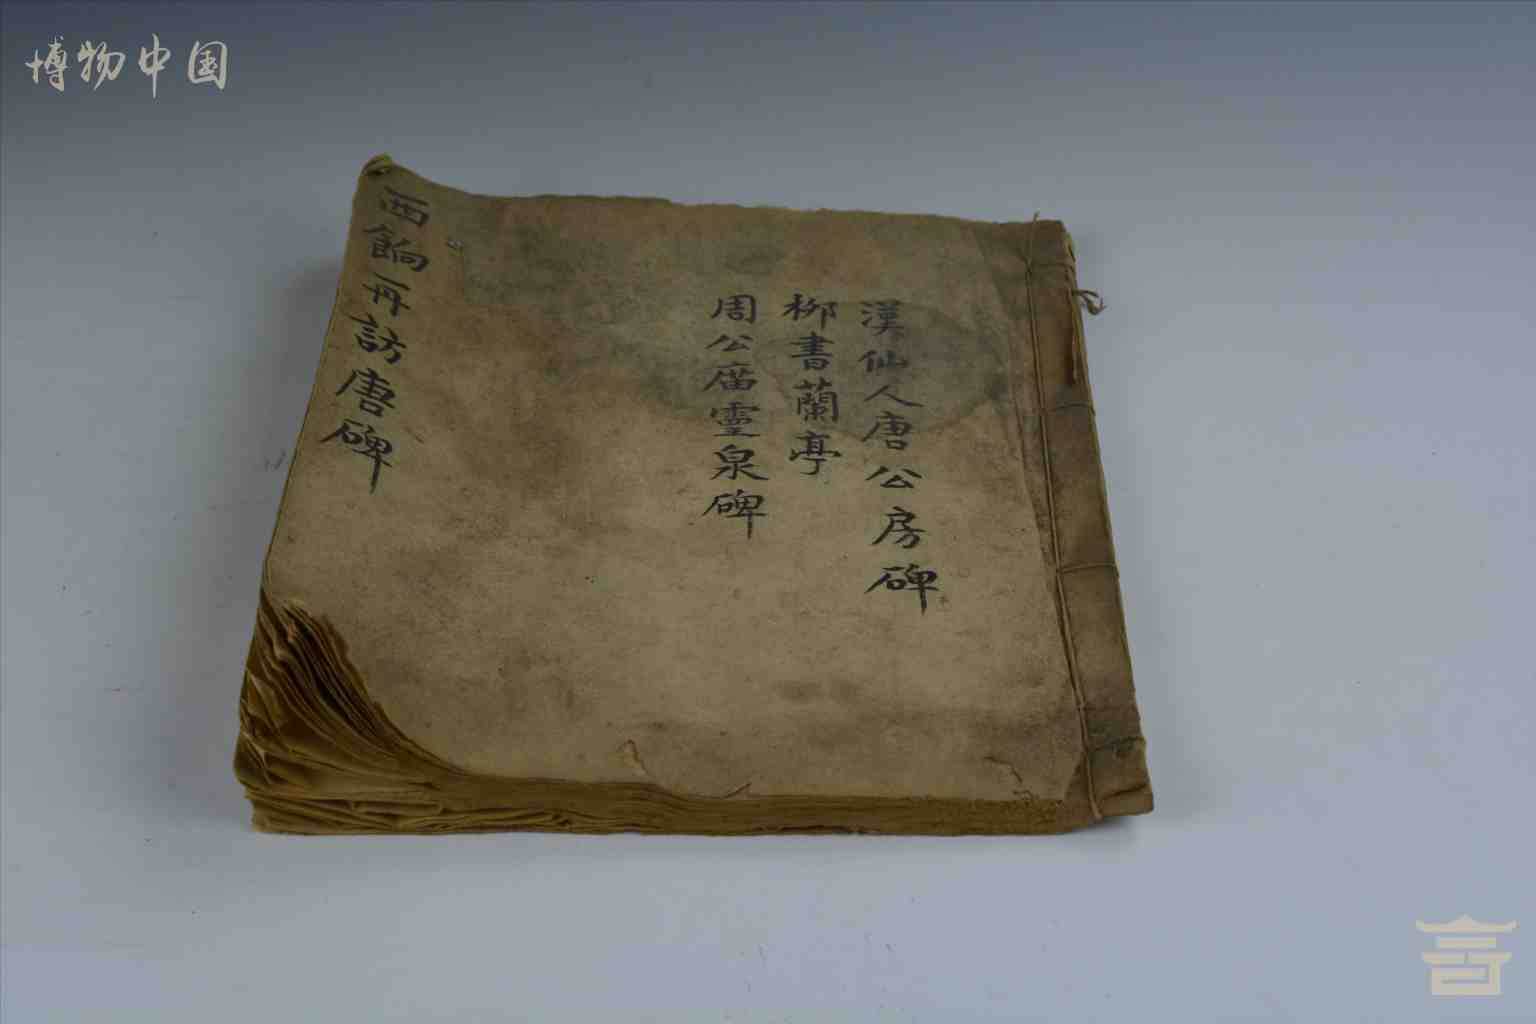 博物中国
漢仙人唐公房碑
柳書蘭亭
周公庿靈泉碑
西餉再訪唐碑